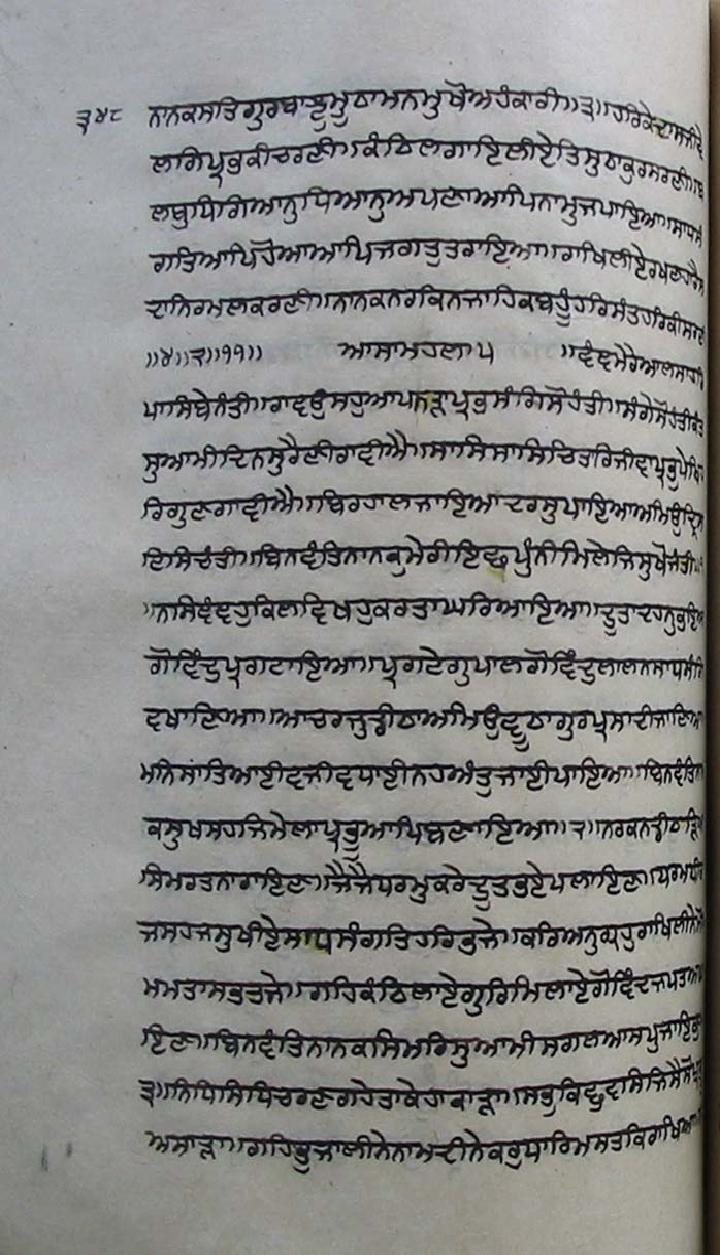 ੩੪੮ ਨਾਨਕਸਾਤਿਗੁਰਬਾਝੁਮੁਠਾਮਨਮੁਖੋਅਹੰਕਾਰੀ॥੩॥ਹਰਿਕੇਦਾਸਜੀਵੇ
ਲਗਿਪ੍ਰਭਕੀਚਰਣੀ॥ਕੰਠਿਲਗਾਇਲੀਏਤਿਸੁਠਾਕੁਰਸਰਣੀ॥ਬ
ਲਬੁਧਿਗਿਆਨੁਧਿਆਨੁਅਪਣਾਆਪਿਨਾਮੁਜਪਾਇਆ॥ਸਾਧਸੰ
ਗਤਿਆਪਿਹੋਆਆਪਿਜਗਤੁਤਰਾਇਆ॥ਰਾਖਿਲੀਏਰਖਣਹਾਰੈਸ
ਦਾਨਿਰਮਲਕਰਣੀ॥ਨਾਨਕਨਰਕਿਨਜਾਹਿਕਬਹੂੰਹਰਿਸੰਤਹਰਿਕੀਸਰਣੀ
॥੪॥੨॥੧੧॥ ਆਸਾਮਹਲਾ੫ ॥ਵੰਞੁਮੇਰੇਆਲਸਾਹਰਿ
ਪਾਸਿਬੇਨੰਤੀ॥ਰਾਵਉਸਹੁਆਪਨੜਾਪ੍ਰਭਸੰਗਿਸੋਹੰਤੀ॥ਸੰਗੇਸੋਹੰਤੀਕੰਤ
ਸੁਆਮੀਦਿਨਸੁਰੈਣੀਰਾਵੀਐ॥ਸਾਸਿਸਾਸਿਚਿਤਾਰਿਜੀਵਾਪ੍ਰਭੁਪੇਖਿਹ
ਰਿਗੁਣਗਾਵੀਐ॥ਬਿਰਹਾਲਜਾਇਆਦਰਸੁਪਾਇਆਅਮਿਉਦ੍ਰਿਸ
ਟਿਸਿਚੰਤੀ॥ਬਿਨਵੰਤਿਨਾਨਕੁਮੇਰੀਇਛਪੁੰਨੀਮਿਲੇਜਿਸੁਖੋਜੰਤੀ॥੧
॥ਨਾਸਿਵੰਞਹੁਕਿਲਵਿਖਹੁਕਰਤਾਘਰਿਆਇਆ॥ਦੂਤਾਦਹਨੁਭਇਆ
ਗੋਵਿੰਦੁਪ੍ਰਗਟਾਇਆ॥ਪ੍ਰਗਟੇਗੁਪਾਲਗੋਵਿੰਦੁਲਾਲਨਸਾਧਸੰਗਿ
ਵਖਾਣਿਆ॥ਆਚਰਜੁਡੀਠਾਅਮਿਉਵੂਠਾਗੁਰਪ੍ਰਸਾਦੀਜਾਣਿਆ
ਮਨਿਸਾਂਤਿਆਈਵਜੀਵਧਾਈਨਹਅੰਤੁਜਾਈਪਾਇਆ॥ਬਿਨਵੰਤਿਨਾਨ
ਕਸੁਖਸਹਜਿਮੇਲਾਪ੍ਰਭੂਆਪਿਬਣਾਇਆ॥੨॥ਨਰਕਨਡੀਠੜਿਆ
ਸਿਮਰਤਨਾਰਾਇਣ॥ਜੈਜੈਧਰਮੁਕਰੇਦੂਤਭਏਪਲਾਇਣ॥ਧਰਮਧੀਰ
ਜਸਹਜਸੁਖੀਏਸਾਧਸੰਗਤਿਹਰਿਭਜੇ॥ਕਰਿਅਨੁਗ੍ਰਹੁਰਾਖਿਲੀਨੇਮੋਹ
ਮਮਤਾਸਭਤਜੇ॥ਗਹਿਕੰਠਿਲਾਏਗੁਰਿਮਿਲਾਏਗੋਵਿੰਦਜਪਤਅਘ
ਇਣ॥ਬਿਨਵੰਤਿਨਾਨਕਸਿਮਰਿਸੁਆਮੀਸਗਲਆਸਪੁਜਾਇਣ
੩॥ਨਿਧਿਸਿਧਿਚਰਣਗਹੇਤਾਕੇਹਾਕਾੜਾ॥ਸਭੁਕਿਛੁਵਸਿਜਿਸੈਸੋਪ੍ਰਭੂ
ਅਸਾੜਾ॥ਗਹਿਭੁਜਾਲੀਨੇਨਾਮਦੀਨੇਕਰੁਧਾਰਿਮਸਤਕਿਰਾਖਿਆ